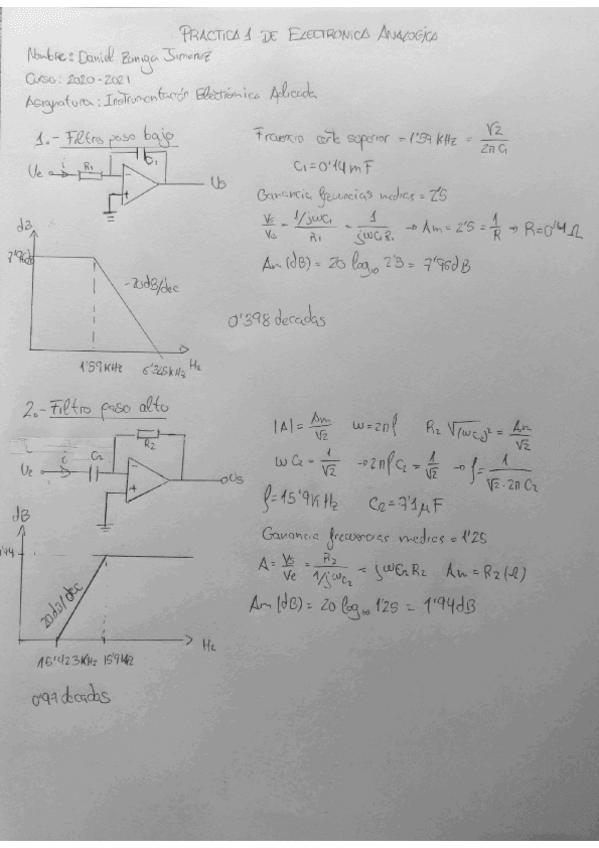 PRACTICA 1 DE ELECTRONICA ANALOGICA
Nombre: Daniel Zuñiga Jimenez
Curso: 2020-2021
Asignatura: Instrumentación Electrónica Aplicada
1.- Filtro paso bajo
C1
Ve i R1 - + Vo
Frecuencia corte superior = 1'59 KHz = √2 / 2π C1
C1 = 0'14 mF
Ganancia frecuencias medias = 2'5
Vs/Ve = 1/jωC1 / R1 = 1 / jωC1R1 → Am = 2'5 = 1/R → R = 0'4 Ω
Am (dB) = 20 log10 2'5 = 7'96 dB
dB
7'96dB
-20dB/dec
1'59 KHz
Hz
0'398 decadas
2.- Filtro paso alto
R2
Ve i C2 - + Vs
|A| = Am/√2 ω = 2πf
ω C2 = 1/√2 → 2πf C2 = 1/√2 → f = 1 / √2·2π C2
f = 15'9 KHz C2 = 7'1 μF
Ganancia frecuencias medias = 1'25
A = Vs/Ve = R2 / 1/jωC2 = jωC2R2 Am = R2 (Ω)
Am (dB) = 20 log10 1'25 = 1'94 dB
dB
20dB/dec
Hz
15'423 KHz
0'97 decadas